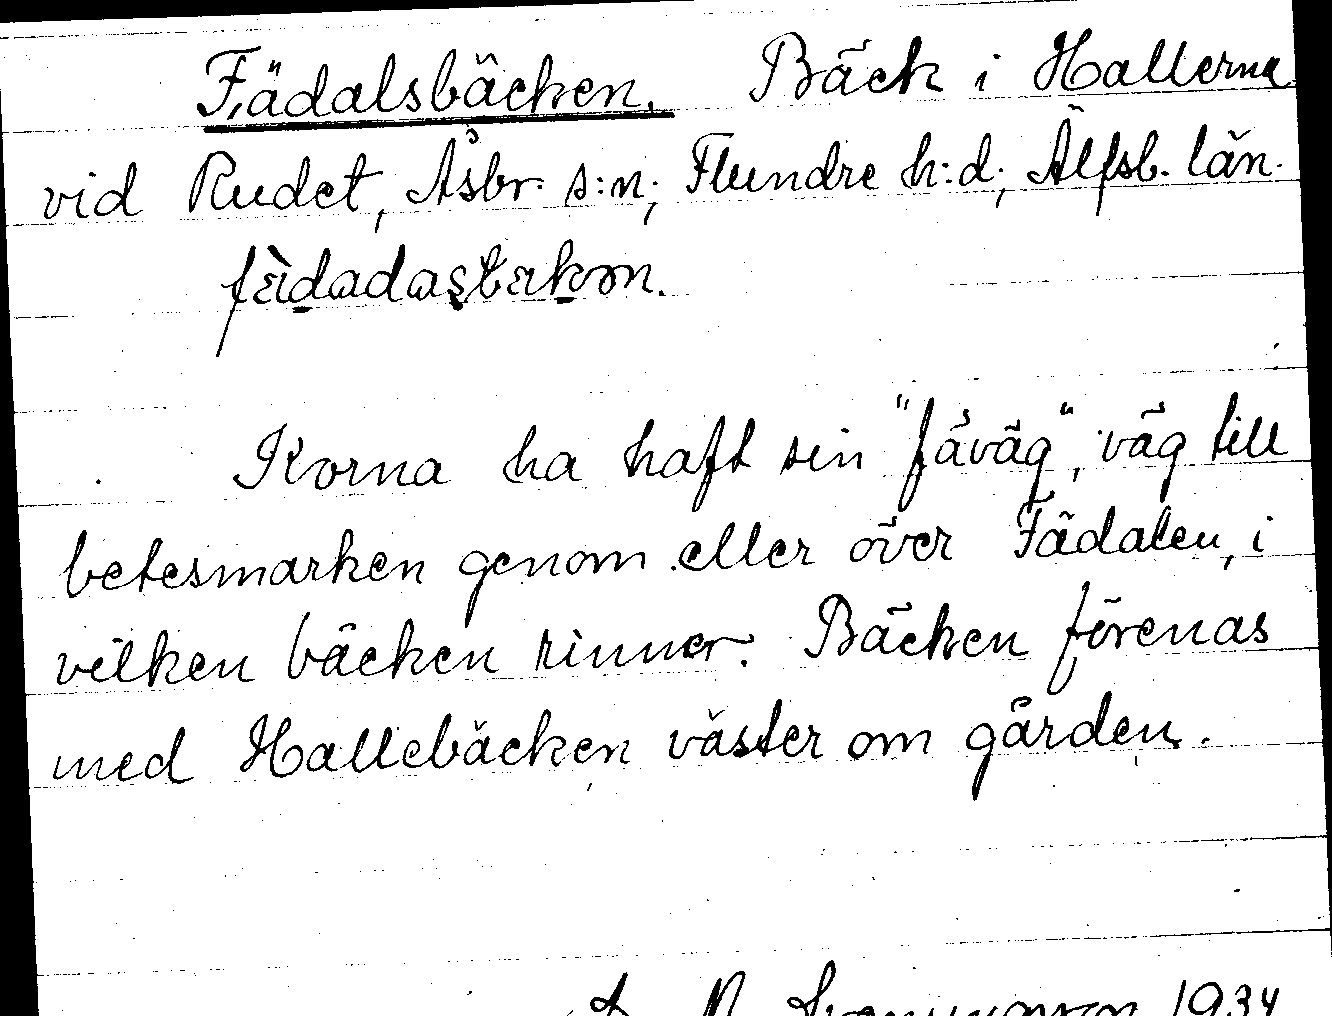 Fädalsbäcken. Bäck i Hallerna
vid Rudet, Åsbr. s:n, Flundre h:d, Älfsb. län.
Korna ha haft sin "fäväg", väg till
betesmarken genom eller över Fädalen, i
vilken bäcken rinner. Bäcken förenas
med Hallebäcken väster om gården.
1934